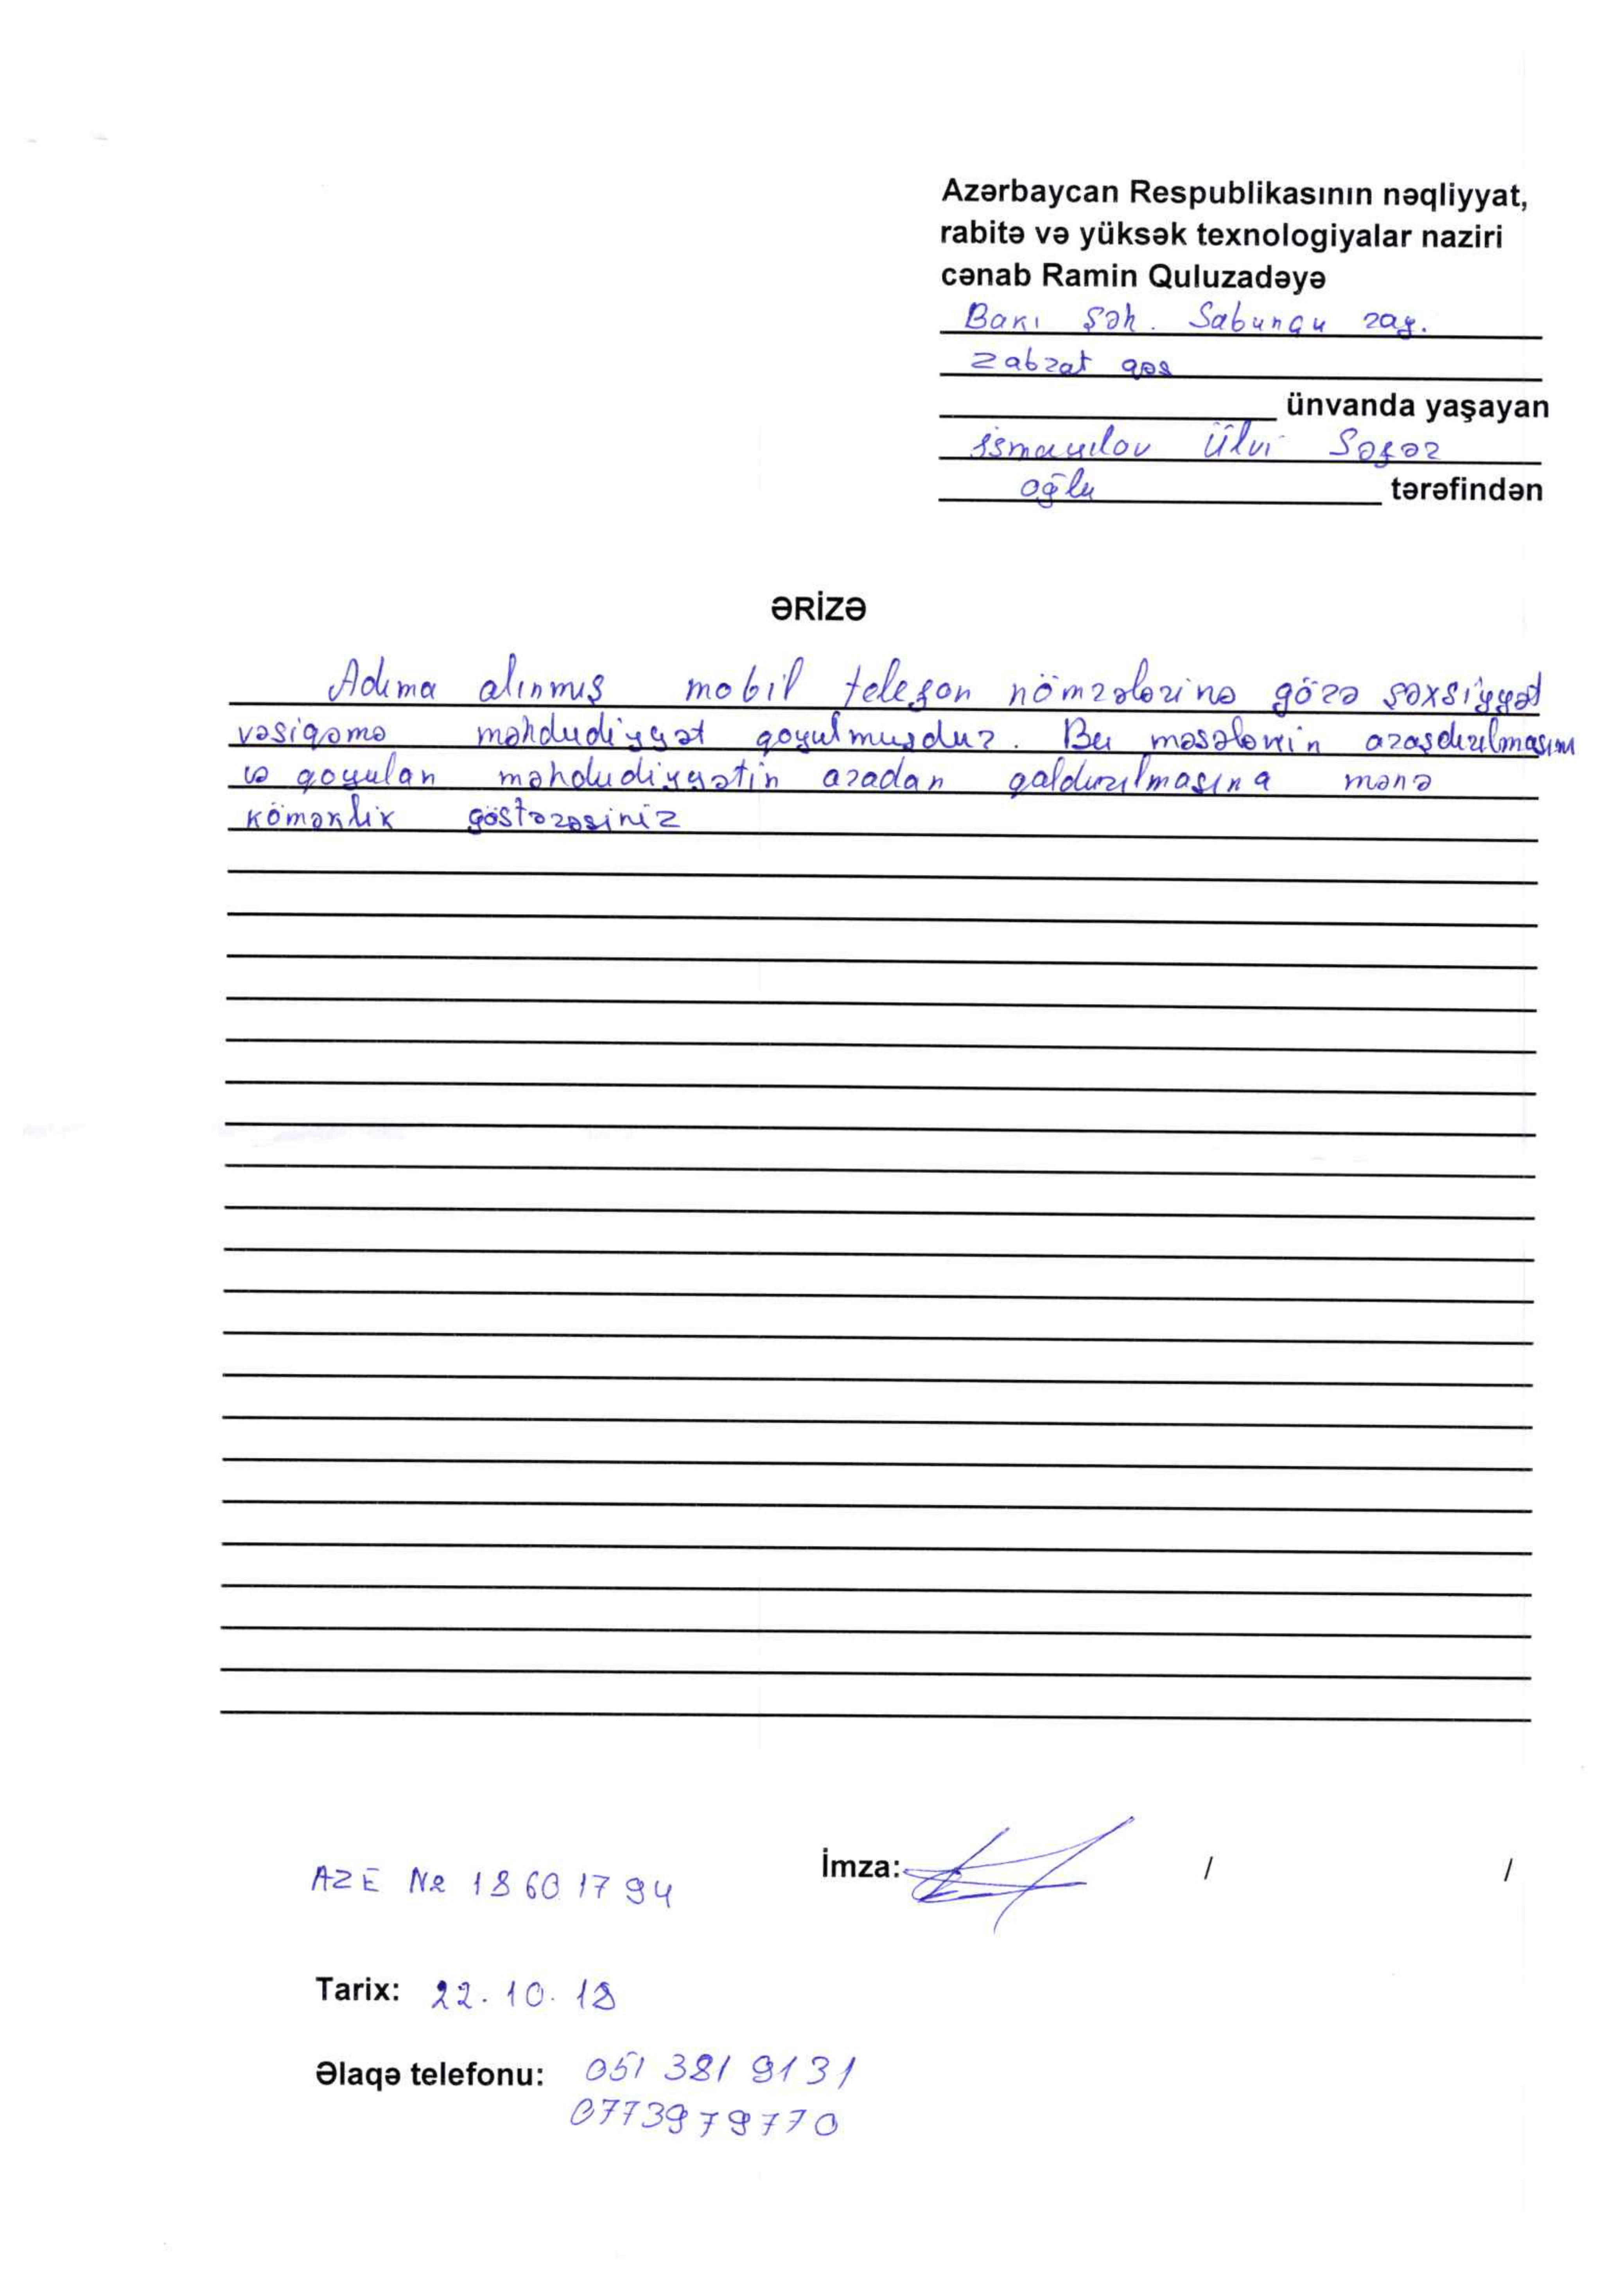 Azərbaycan Respublikasının nəqliyyat,
rabitə və yüksək texnologiyalar naziri
cənab Ramin Quluzadəyə
Bakı şəh. Sabunçu ray.
Zabrat qəs
ünvanda yaşayan
İsmayılov Ülvi Səfər
oğlu tərəfindən
ƏRİZƏ
Adıma alınmış mobil telefon nömrələrinə görə şəxsiyyət
vəsiqəmə məhdudiyyət qoyulmuşdur. Bu məsələnin araşdırılmasını
və qoyulan məhdudiyyətin aradan qaldırılmasına mənə
köməklik göstərəsiniz
İmza: / /
AZE № 18601794
Tarix: 22.10.18
Əlaqə telefonu: 051 381 9131
0773979770